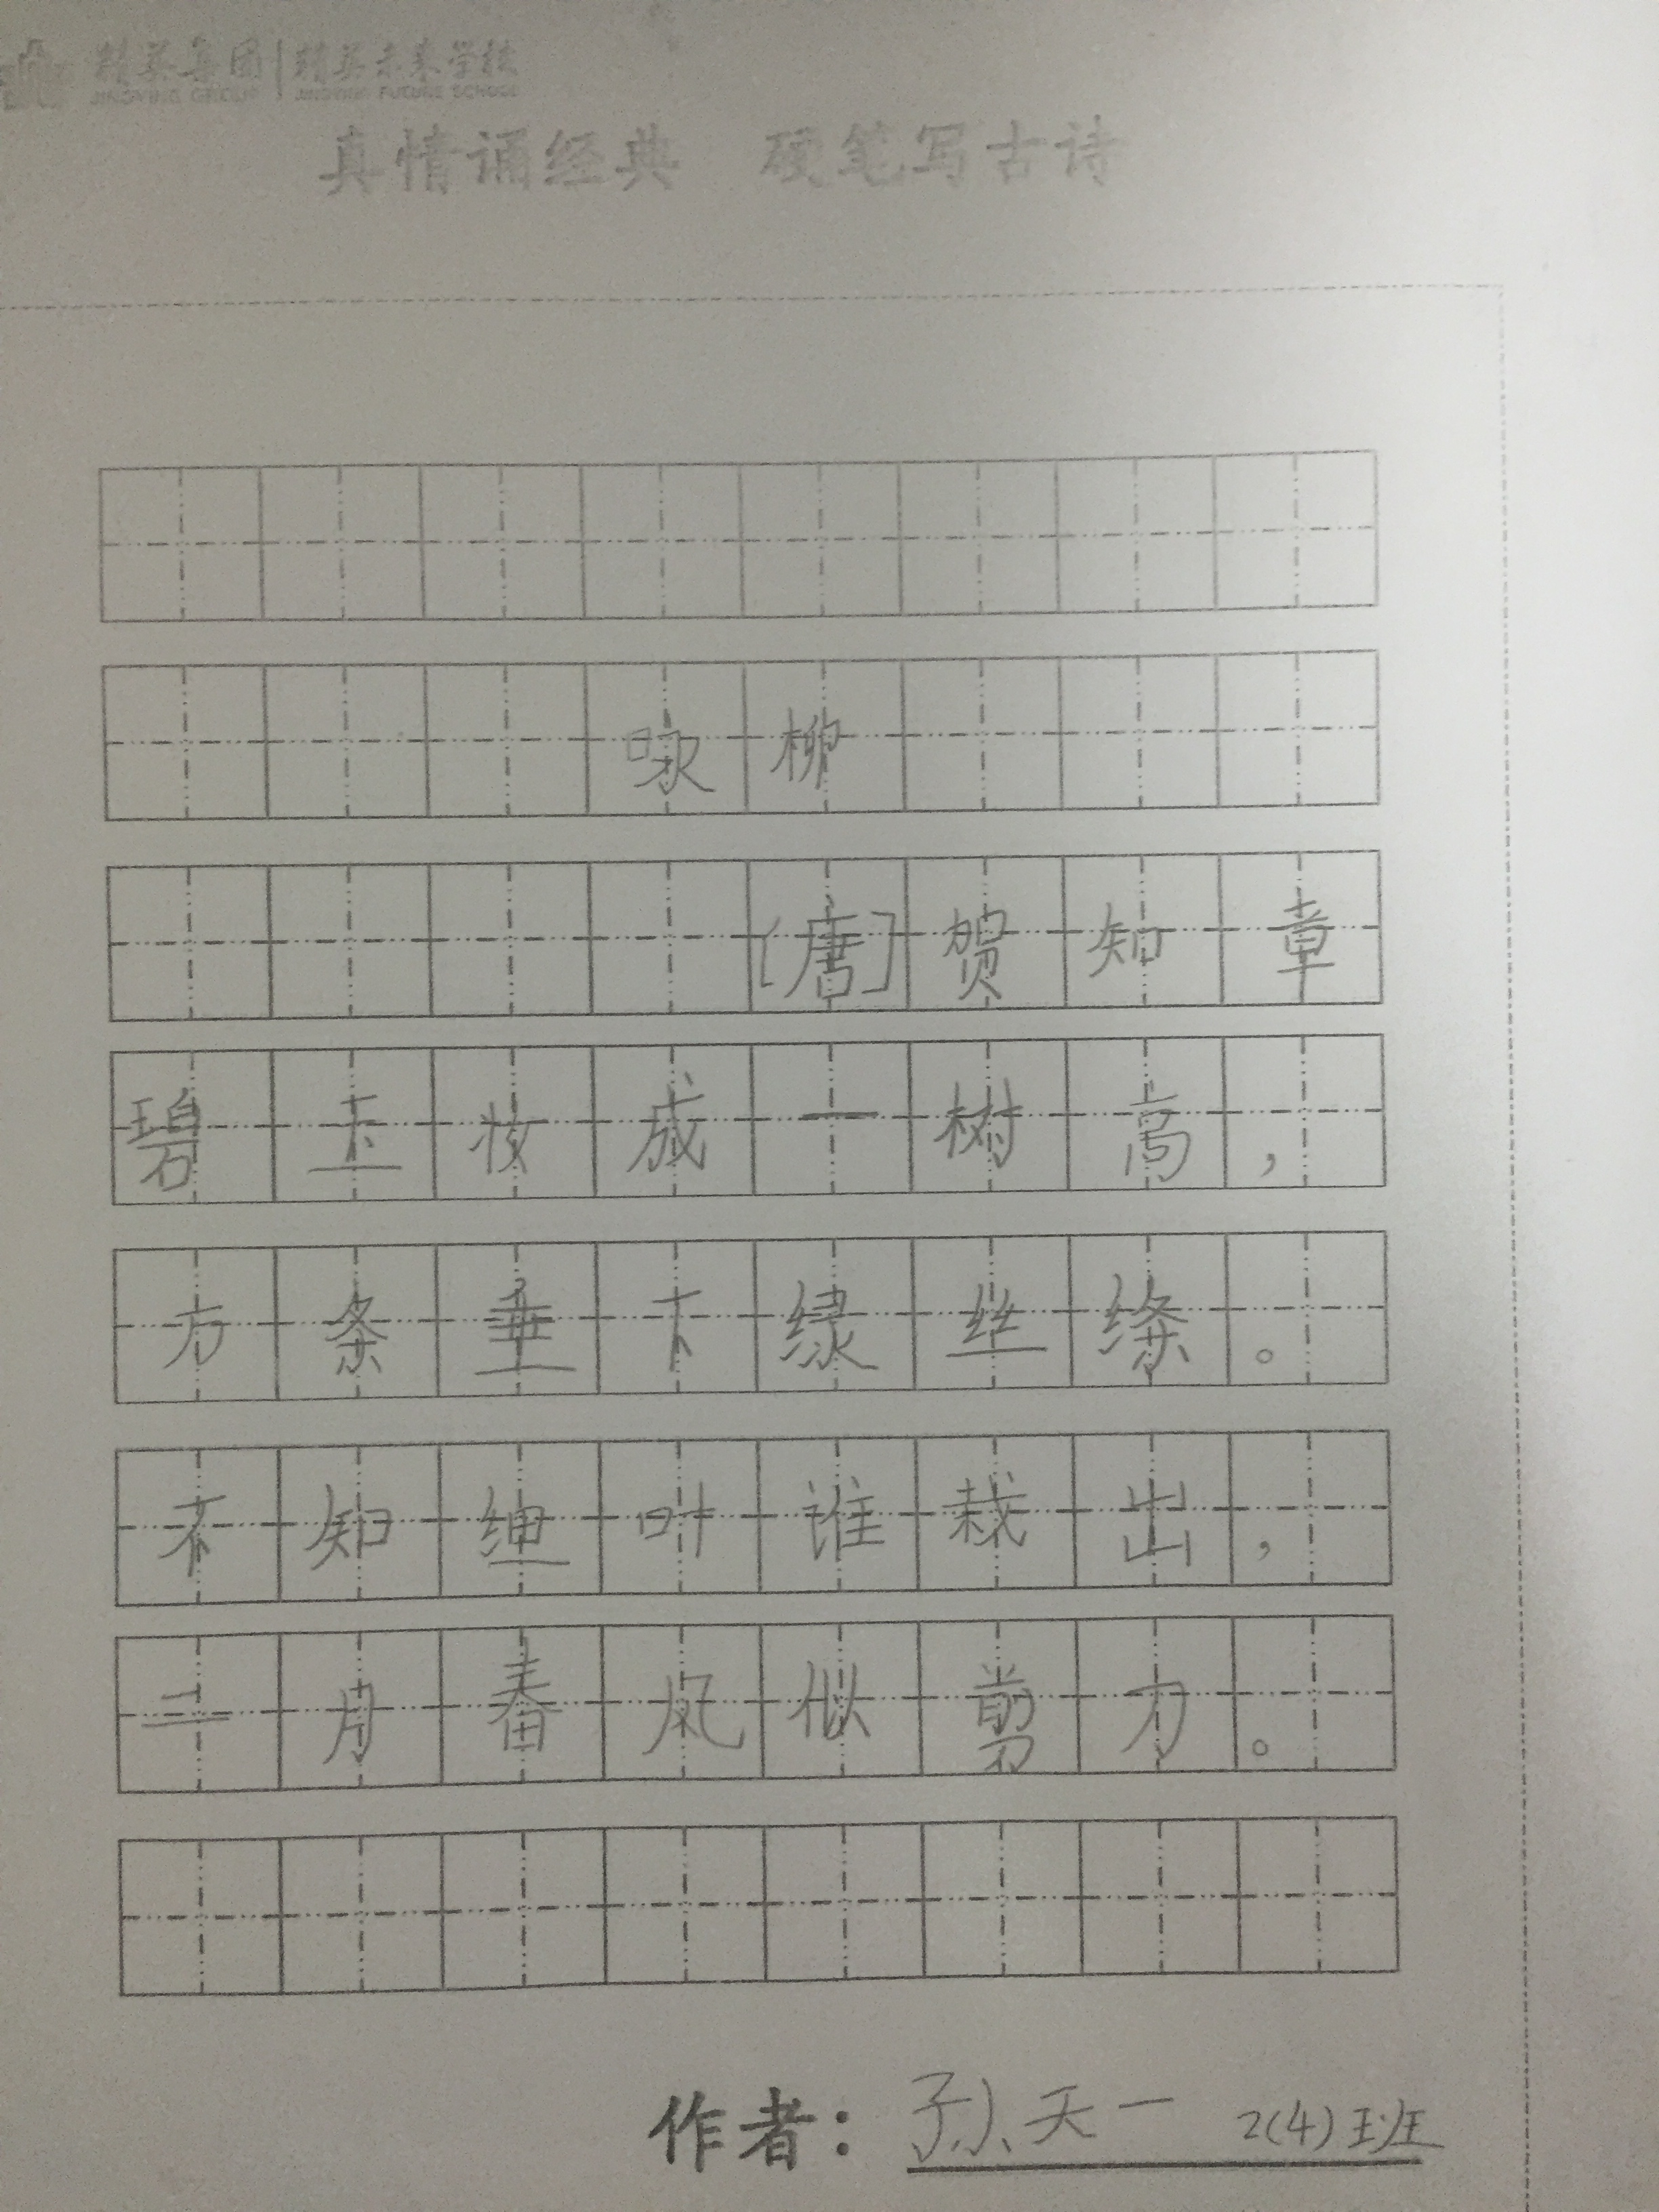 精英集团 精英未来学校
JINGYING GROUP JINGYING FUTURE SCHOOL
真情诵经典 硬笔写古诗
咏柳
[唐]贺知章
碧玉妆成一树高，
万条垂下绿丝绦。
不知细叶谁裁出，
二月春风似剪刀。
作者：孙天一 2(4)班